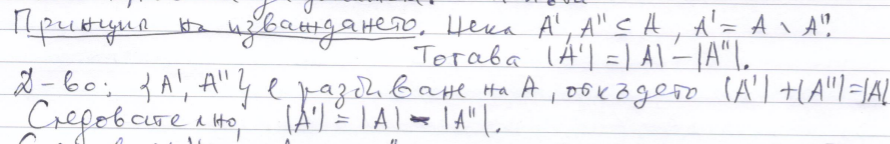 Принцип на изваждането. Нека A', A'' ⊆ A, A' = A \ A''.
Тогава |A'| = |A| - |A''|.
Д-во: {A', A''} е разбиване на A, откъдето |A'| + |A''| = |A|
Следователно, |A'| = |A| - |A''|.